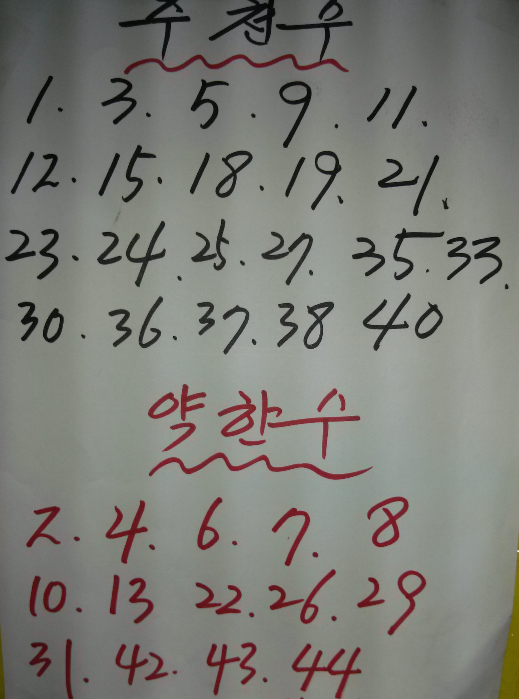 추천수
1. 3. 5. 9. 11.
12. 15. 18. 19. 21.
23. 24. 25. 27. 35. 33.
30. 36. 37. 38 40
약한수
2. 4. 6. 7. 8
10. 13 22. 26. 29
31. 42. 43. 44